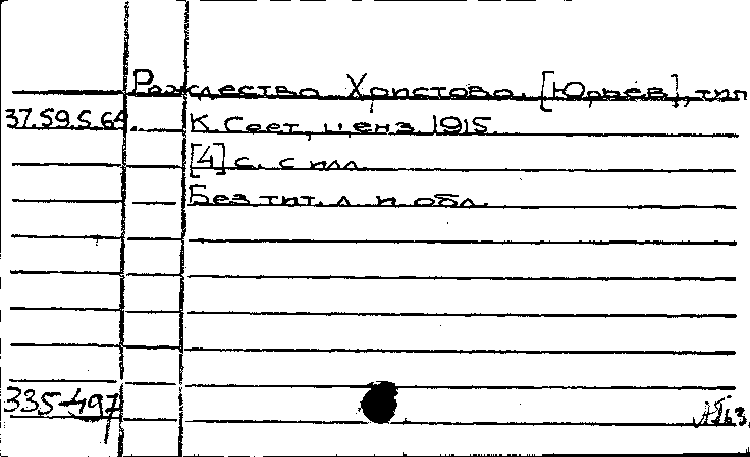 Рождество Христово. [Юрьев], тип
37.59.5.64. К. Сеет, ценз. 1915.
[4] с. с илл.
Без тит. л. и обл.
335-497